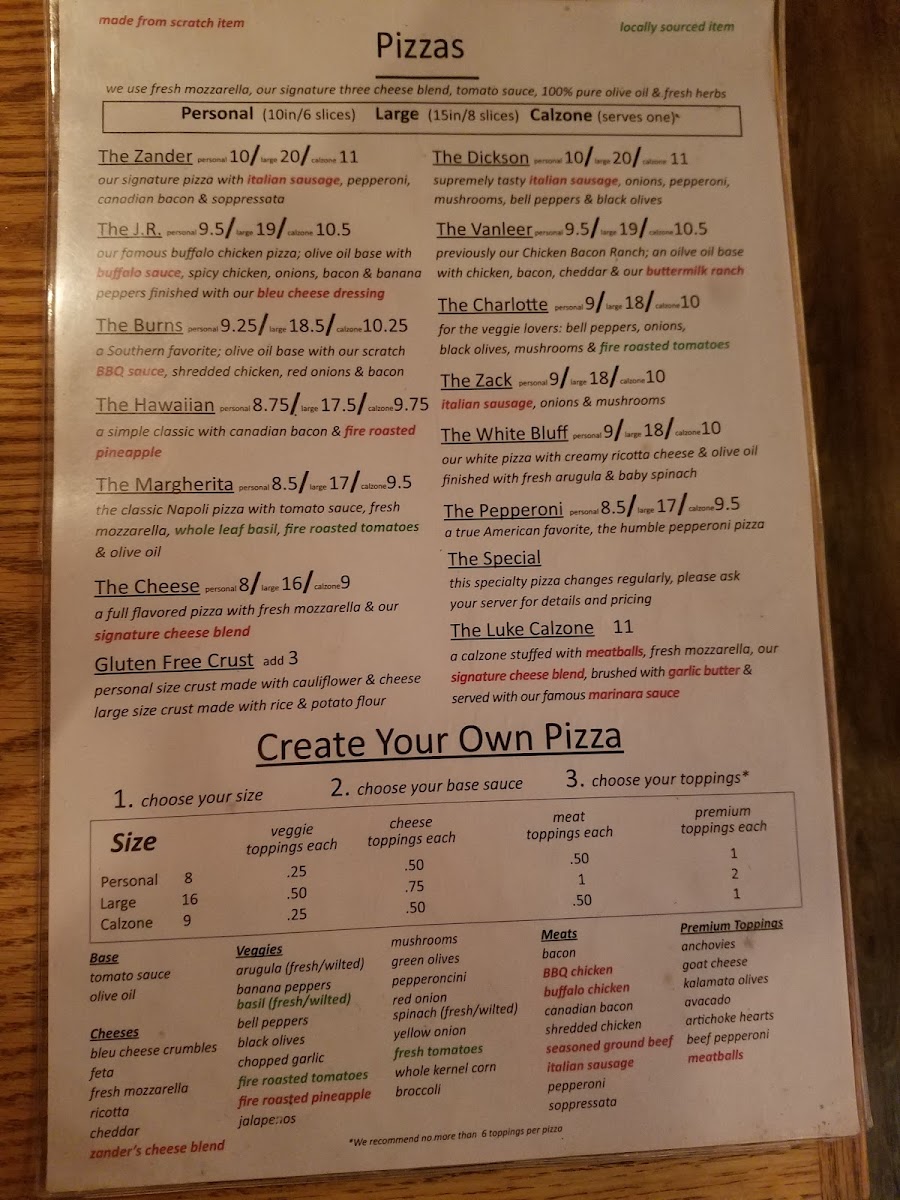 made from scratch item
locally sourced item
Pizzas
we use fresh mozzarella, our signature three cheese blend, tomato sauce, 100% pure olive oil & fresh herbs
Personal (10in/6 slices) Large (15in/8 slices) Calzone (serves one)*
The Zander personal 10/large 20/calzone 11
our signature pizza with italian sausage, pepperoni,
canadian bacon & soppressata
The J.R. personal 9.5/large 19/calzone 10.5
our famous buffalo chicken pizza; olive oil base with
buffalo sauce, spicy chicken, onions, bacon & banana
peppers finished with our bleu cheese dressing
The Burns personal 9.25/large 18.5/calzone 10.25
a Southern favorite; olive oil base with our scratch
BBQ sauce, shredded chicken, red onions & bacon
The Hawaiian personal 8.75/large 17.5/calzone 9.75
a simple classic with canadian bacon & fire roasted
pineapple
The Margherita personal 8.5/large 17/calzone 9.5
the classic Napoli pizza with tomato sauce, fresh
mozzarella, whole leaf basil, fire roasted tomatoes
& olive oil
The Cheese personal 8/large 16/calzone 9
a full flavored pizza with fresh mozzarella & our
signature cheese blend
Gluten Free Crust add 3
personal size crust made with cauliflower & cheese
large size crust made with rice & potato flour
The Dickson personal 10/large 20/calzone 11
supremely tasty italian sausage, onions, pepperoni,
mushrooms, bell peppers & black olives
The Vanleer personal 9.5/large 19/calzone 10.5
previously our Chicken Bacon Ranch; an olive oil base
with chicken, bacon, cheddar & our buttermilk ranch
The Charlotte personal 9/large 18/calzone 10
for the veggie lovers: bell peppers, onions,
black olives, mushrooms & fire roasted tomatoes
The Zack personal 9/large 18/calzone 10
italian sausage, onions & mushrooms
The White Bluff personal 9/large 18/calzone 10
our white pizza with creamy ricotta cheese & olive oil
finished with fresh arugula & baby spinach
The Pepperoni personal 8.5/large 17/calzone 9.5
a true American favorite, the humble pepperoni pizza
The Special
this specialty pizza changes regularly, please ask
your server for details and pricing
The Luke Calzone 11
a calzone stuffed with meatballs, fresh mozzarella, our
signature cheese blend, brushed with garlic butter &
served with our famous marinara sauce
Create Your Own Pizza
1. choose your size 2. choose your base sauce 3. choose your toppings*
Size
veggie
toppings each
cheese
toppings each
meat
toppings each
premium
toppings each
Personal 8 .25 .50 .50 1
Large 16 .50 .75 1 2
Calzone 9 .25 .50 .50 1
Base
tomato sauce
olive oil
Cheeses
bleu cheese crumbles
feta
fresh mozzarella
ricotta
cheddar
zander's cheese blend
Veggies
arugula (fresh/wilted)
banana peppers
basil (fresh/wilted)
bell peppers
black olives
chopped garlic
fire roasted tomatoes
fire roasted pineapple
jalapenos
mushrooms
green olives
pepperoncini
red onion
spinach (fresh/wilted)
yellow onion
fresh tomatoes
whole kernel corn
broccoli
Meats
bacon
BBQ chicken
buffalo chicken
canadian bacon
shredded chicken
seasoned ground beef
italian sausage
pepperoni
soppressata
Premium Toppings
anchovies
goat cheese
kalamata olives
avacado
artichoke hearts
beef pepperoni
meatballs
*We recommend no more than 6 toppings per pizza